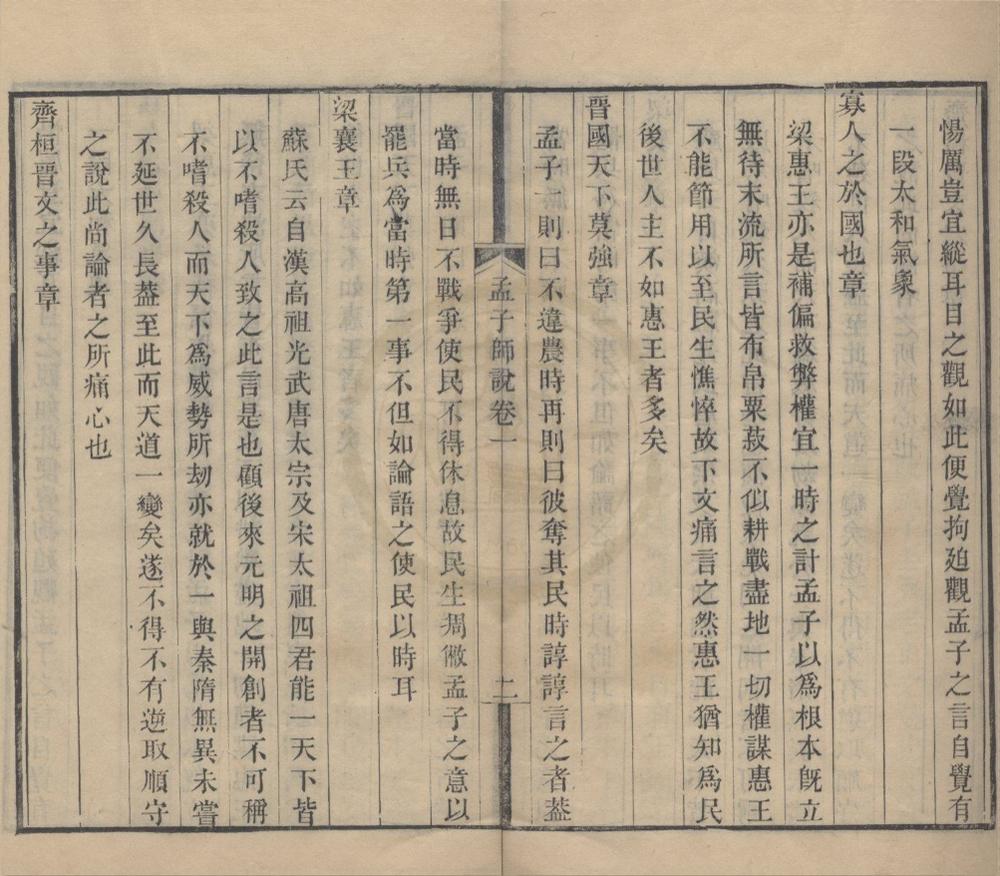 惕厲豈宜縱耳目之觀如此便覺拘廹觀孟子之言自覺有
一段太和氣象
寡人之於國也章
梁惠王亦是補偏救弊權宜一時之計孟子以爲根本旣立
無待末流所言皆布帛粟菽不似耕戰盡地一切權謀惠王
不能節用以至民生憔悴故下文痛言之然惠王猶知爲民
後世人主不如惠王者多矣
晉國天下莫強章
孟子一則曰不違農時再則曰彼奪其民時諄諄言之者葢
孟子師說卷一
二
當時無日不戰爭使民不得休息故民生凋徶孟子之意以
罷兵爲當時第一事不但如論語之使民以時耳
梁襄王章
蘇氏云自漢高祖光武唐太宗及宋太祖四君能一天下皆
以不嗜殺人致之此言是也顧後來元明之開創者不可稱
不嗜殺人而天下爲威勢所刼亦就於一與秦隋無異未嘗
不延世久長葢至此而天道一變矣遂不得不有逆取順守
之說此尚論者之所痛心也
齊桓晉文之事章